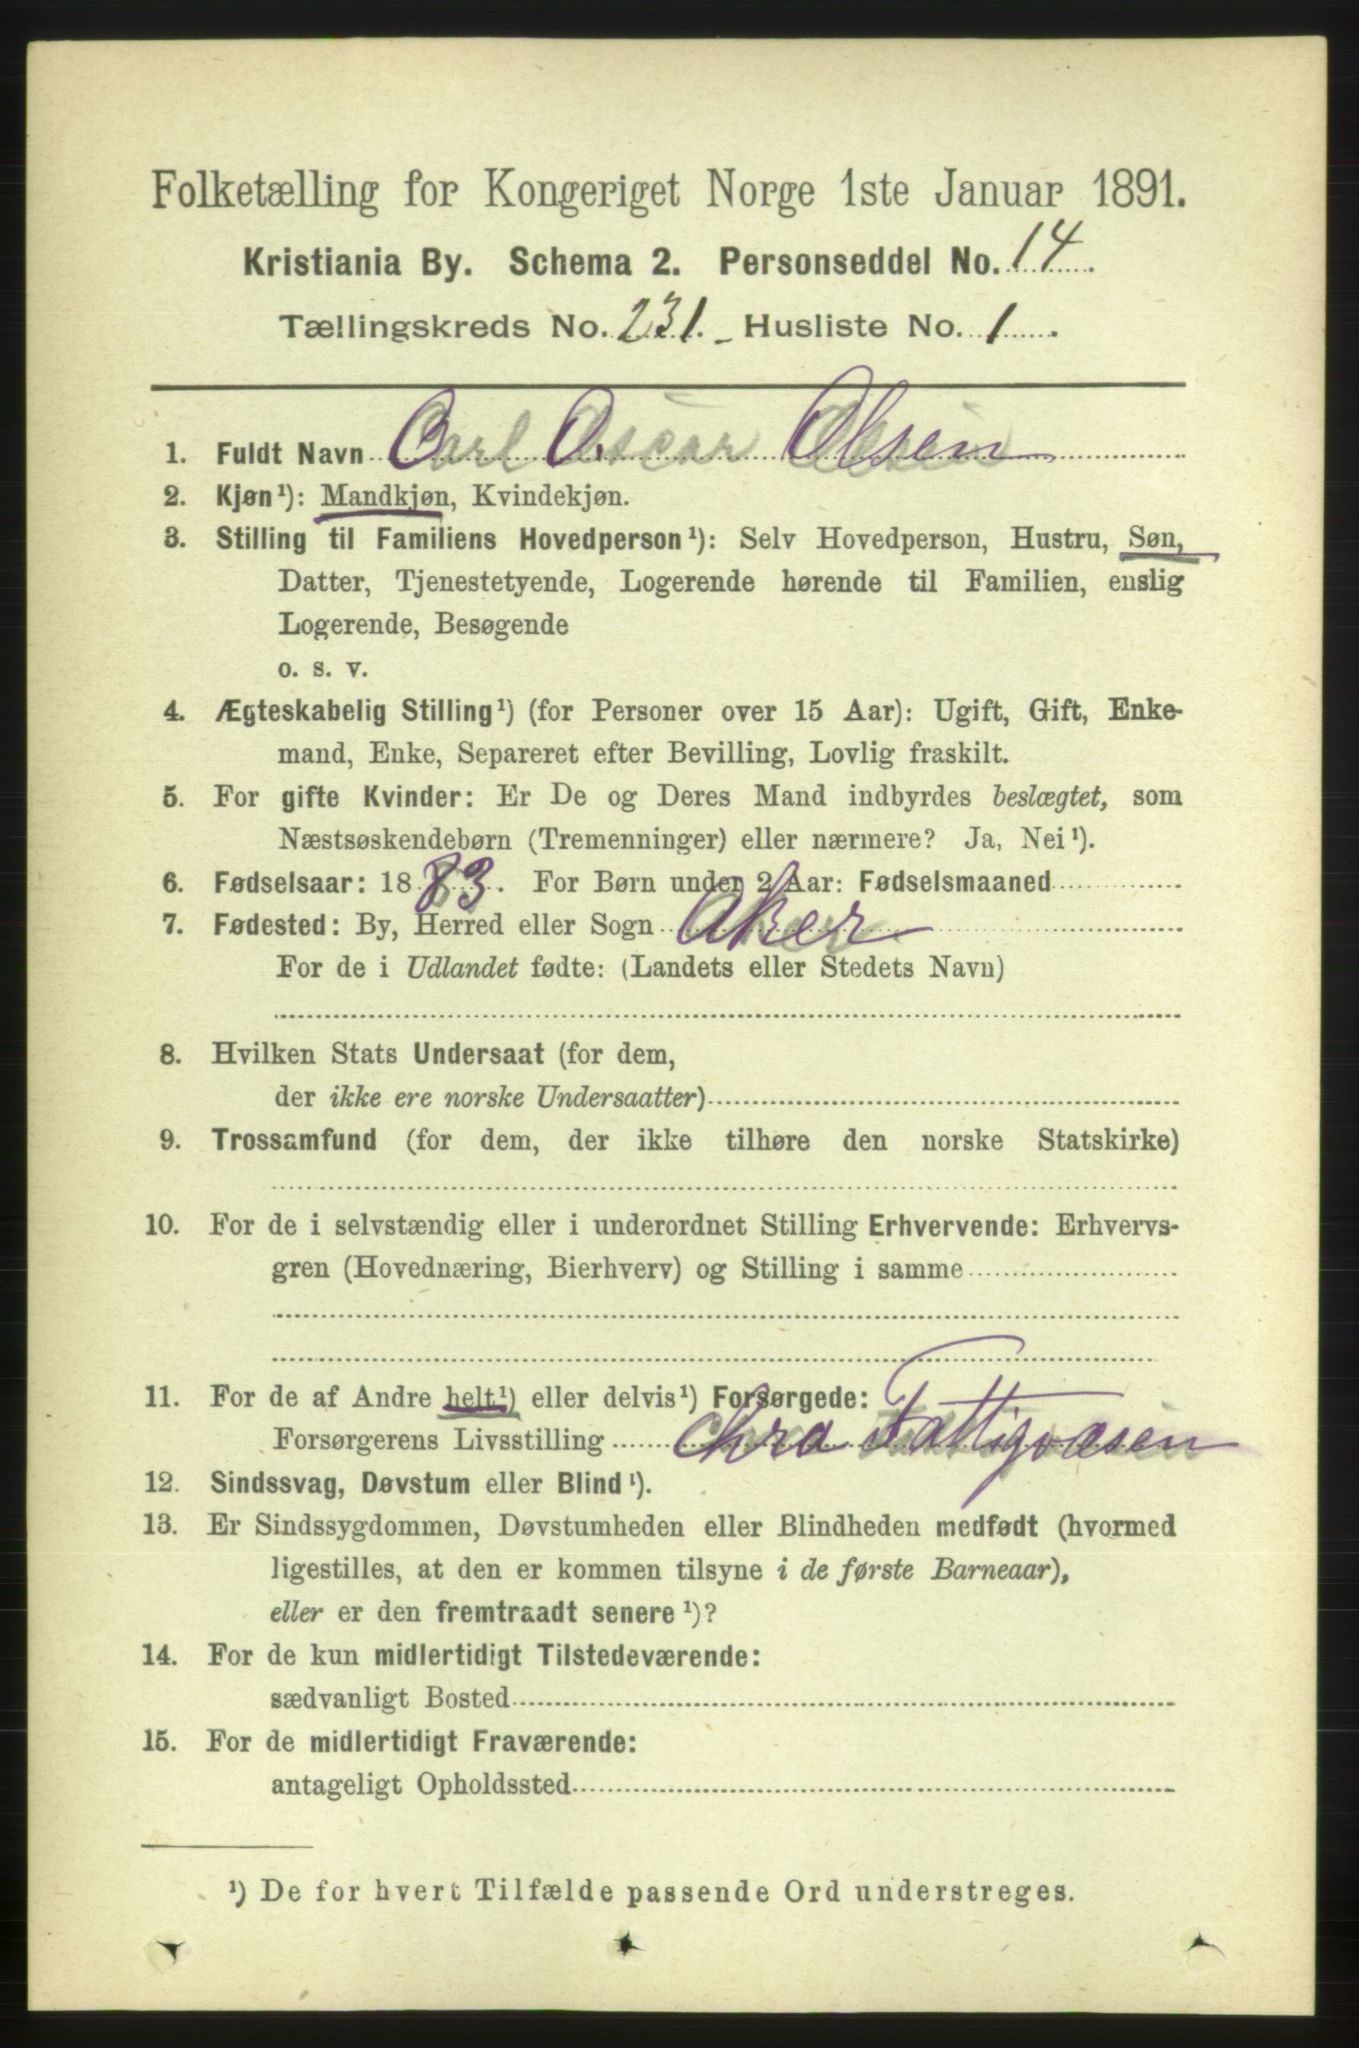 Folketælling for Kongeriget Norge 1ste Januar 1891.
Kristiania By. Schema 2. Personseddel No. 14
Tællingskreds No. 231. - Husliste No. 1.
1. Fuldt Navn Carl Oscar Olsen
2. Kjøn¹): Mandkjøn, Kvindekjøn.
3. Stilling til Familiens Hovedperson¹): Selv Hovedperson, Hustru, Søn,
Datter, Tjenestetyende, Logerende hørende til Familien, enslig
Logerende, Besøgende
o. s. v.
4. Ægteskabelig Stilling¹) (for Personer over 15 Aar): Ugift, Gift, Enke-
mand, Enke, Separeret efter Bevilling, Lovlig fraskilt.
5. For gifte Kvinder: Er De og Deres Mand indbyrdes beslægtet, som
Næstsøskendebørn (Tremenninger) eller nærmere? Ja, Nei¹).
6. Fødselsaar: 1883. For Børn under 2 Aar: Fødselsmaaned
7. Fødested: By, Herred eller Sogn Aker
For de i Udlandet fødte: (Landets eller Stedets Navn)
8. Hvilken Stats Undersaat (for dem,
der ikke ere norske Undersaatter)
9. Trossamfund (for dem, der ikke tilhøre den norske Statskirke)
10. For de i selvstændig eller i underordnet Stilling Erhvervende: Erhvervs-
gren (Hovednæring, Bierhverv) og Stilling i samme
11. For de af Andre helt¹) eller delvis¹) Forsørgede:
Forsørgerens Livsstilling Chra Fattigvæsen
12. Sindssvag, Døvstum eller Blind¹).
13. Er Sindssygdommen, Døvstumheden eller Blindheden medfødt (hvormed
ligestilles, at den er kommen tilsyne i de første Barneaar),
eller er den fremtraadt senere¹)?
14. For de kun midlertidigt Tilstedeværende:
sædvanligt Bosted
15. For de midlertidigt Fraværende:
antageligt Opholdssted
¹) De for hvert Tilfælde passende Ord understreges.